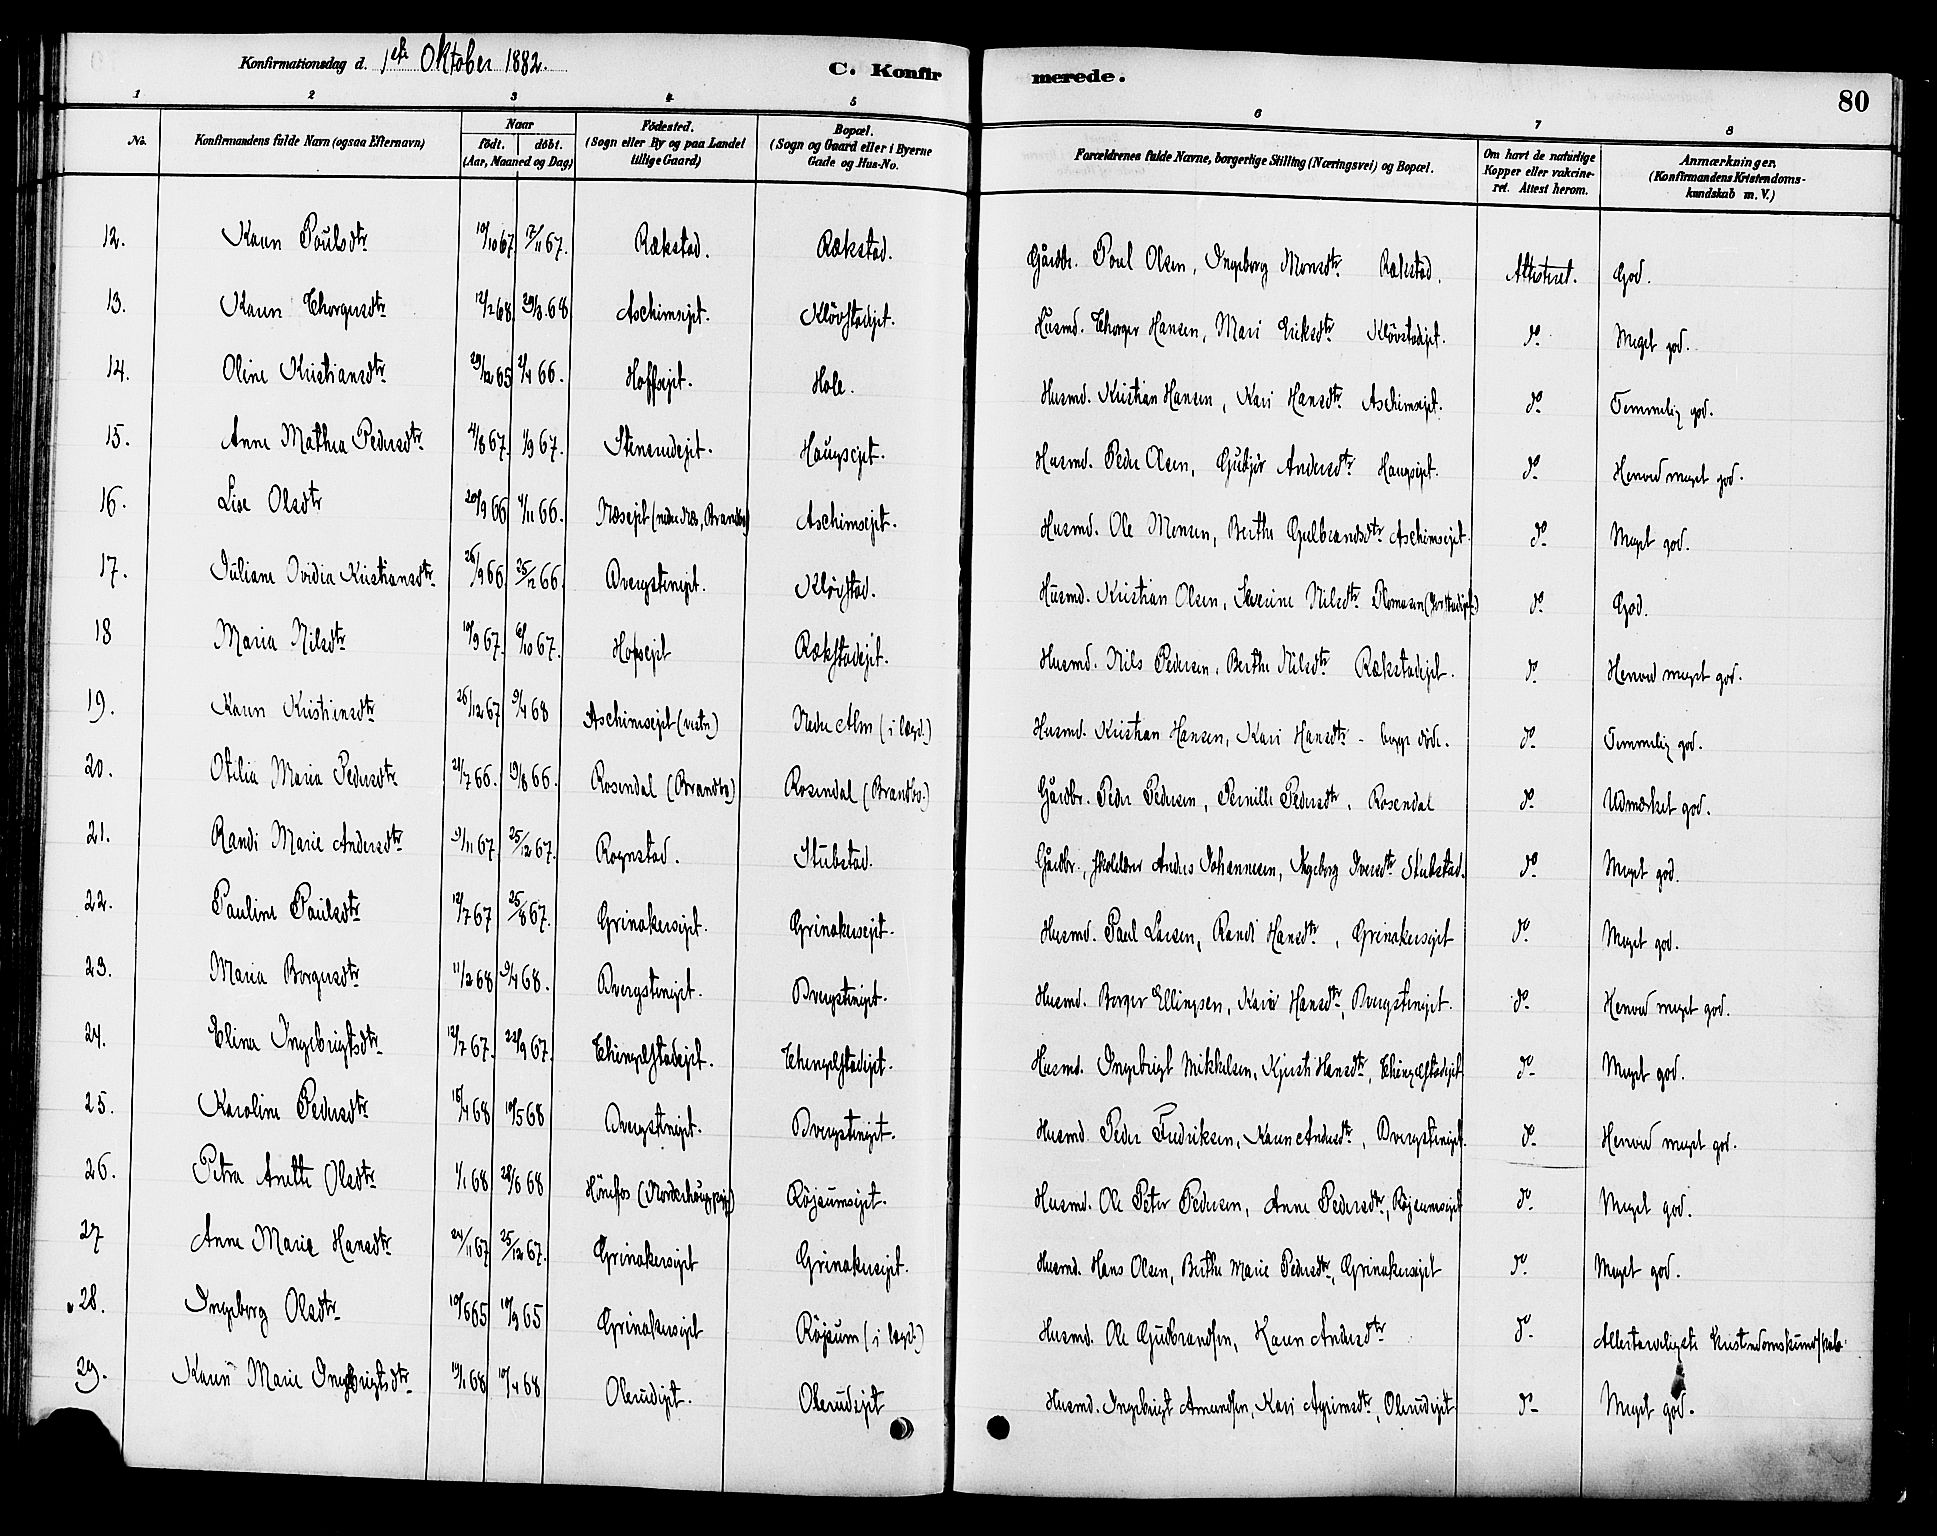 Konfirmationsdag d. 1ste Oktober 1882.
C. Konfirmerede.
80
1 2 3 4 5 6 7 8
No.
Konfirmandens fulde Navn (ogsaa Efternavn)
Naar
födt. döbt.
(Aar, Maaned og Dag)
Födested.
(Sogn eller By og paa Landet tillige Gaard)
Bopæl.
(Sogn og Gaard eller i Byerne Gade og Hus-No.
Forældrenes fulde Navne, borgerlige Stilling (Næringsvei) og Bopæl.
Om havt de naturlige Kopper eller vakcineret. Attest herom.
Anmærkninger.
(Konfirmandens Kristendomskundskab m. V.)
12. Karen Poulsdtr 10/10 67 17/11 67. Rækstad. Rækstad. Gårdbr. Poul Olsen, Ingeborg Monsdtr. Rækstad. Attesteret. God.
13. Karen Thorgersdtr 12/2 68 29/3 68 Aschimsejet. Klövstadejet. Husmd. Thorger Hansen, Mari Eriksdtr Klövstadejet. do. Meget god.
14. Oline Kristiansdtr 29/12 65 2/4 66. Hoffsejet. Hole. Husmd. Kristian Hansen, Kari Hansdtr. Aschimsejet. do. Temmelig god.
15. Anne Mathea Pedersdtr 4/8 67. 1/9 67. Stenerudejet. Haugsejet. Husmd. Peder Olsen, Gudjør Andersdtr Haugsejet. do Henved meget god.
16. Lise Olsdtr 20/9 66 4/11 66. Næsejet (nedre Næs, Brandbo) Aschimsejet. Husmd. Ole Monsen, Berthe Gulbrandsdtr Aschimsejet. do. Meget god.
17. Juliane Ovidia Kristiansdtr. 26/9 66 25/12 66. Dvergstenejet. Klövstad. Husmd. Kristian Olsen, Severine Nilsdtr do God.
18 Maria Nilsdtr 10/9 67. 6/10 67. Hofsejet Rækstadejet. Husmd. Nils Pedersen, Berthe Nilsdtr Rækstadejet. do Henved meget god.
19. Karen Kristiansdtr 26/12 67 9/4 68 Aschimsejet (vestre) Nedre Alm (i lægd.) Husmd. Kristian Hansen, Kari Hansdtr - begge døde. do. Temmelig god.
20. Otilia Maria Pedersdtr 21/7 66. 19/8 66. Rosendal (Brandbo) Rosendal (Brandbo.) Gårdbr. Peder Pedersen, Pernille Pedersdtr, Rosendal do Udmærket god.
21. Randi Marie Andersdtr 9/11 67. 25/12 67. Rognstad. Stubstad. Gårdbr., skolelærer Anders Johannesen, Ingeborg Iversdtr Stubstad. do Meget god.
22. Pauline Paulsdtr 12/7 67 25/8 67. Grinakersejet. Grinakersejet. Husmd. Paul Larsen, Randi Hansdtr, Grinakersejet do Meget god.
23. Maria Borgersdtr 11/2 68 9/4 68. Dvergstenejet. Dvergstenejet. Husmd. Borger Ellingsen, Kari Hansdtr, Dvergstenejet. do Henved meget god.
24. Elina Ingebrigtsdtr 12/7 67. 22/9 67. Thingelstadejet. Thingelstadejet. Husmd. Ingebrigt Mikkelsen, Kjersti Hansdtr, Thingelstadejet do Meget god.
25. Karoline Pedersdtr 15/4 68 10/5 68 Dvergstenejet. Dvergstenejet. Husmd. Peder Fredriksen, Karen Andersdtr, Dvergstenejet. do Henved meget god.
26. Petra Anette Olsdtr 1/1 68 28/6 68 Hönefos (Norderhougs pgj.) Røjsumsejet. Husmd. Ole Peter Pedersen, Anne Pedersdtr, Røjsumsejet do Meget god.
27 Anne Marie Hansdtr 24/11 67 25/12 67. Grinakersejet Grinakersejet. Husmd. Hans Olsen, Berthe Marie Pedersdtr, Grinakersejet do. Meget god.
28. Ingeborg Olsdtr 10/6 65 10/9 65 Grinakersejet Røjsum (i lægd.) Husmd. Ole Gudbrandsen, Karen Andersdtr do. Allertarveligste Kristendomskundskab.
29. Karen Marie Ingebrigtsdtr 19/1 68 10/4 68 Olerudejet. Olerudejet Husmd. Ingebrigt Amundsen, Kari Asgrimsdtr, Olerudejet do Meget god.